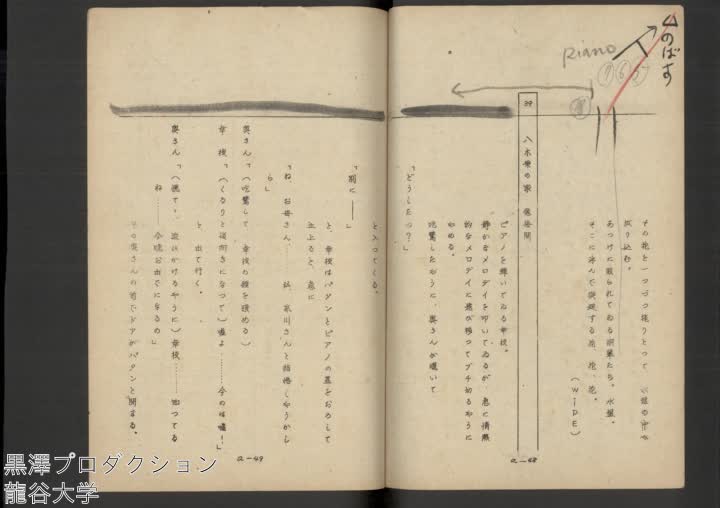 のばす
Piano
その花を一つづつ毟りとつて、水盤の中へ
放り込む。
あつけに取られてゐる
水盤。
そこに浮んで
する花、花、花。
(WIPE)
39 八木原の家 應接間
ピアノを弾いてゐる幸枝。
静かなメロデイを叩いてゐるが、急に情熱
的なメロデイに
移つてブチ切るやうに
やめる。
吃驚したやうに、奥さんが覗いて
「どうしたの?」
a-48
と入つてくる。
「別に――」
と、幸枝はバタンとピアノの蓋をおろして
立上ると、急に
「ね、お母さん……私、
川さんと結婚しやうかし
ら」
奥さん「(吃驚して、幸枝の顔を瞶める)
幸枝「(くるりと後向きになつて)嘘よ……今のは嘘!」
と、出て行く。
奥さん「(慌てゝ、追ひかけるやうに)幸枝……
つてる
ね……今晩お出でになるのゝ」
その奥さんの前でドアがバタンと閉る。
a-49
黒澤プロダクション
龍谷大学